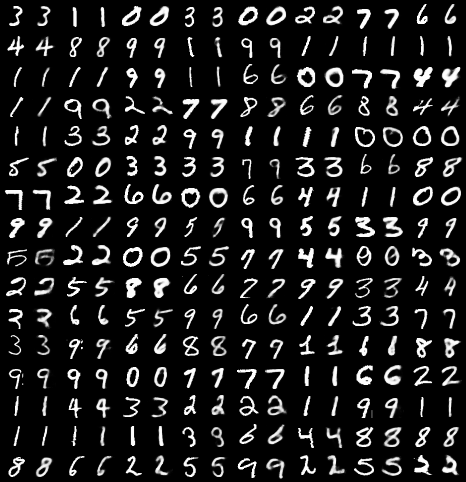 3 3 1 1 0 0 3 3 0 0 2 2 7 7 6 6
4 4 8 8 9 9 1 1 9 9 1 1 1 1 1 1
1 1 1 1 9 9 1 1 6 6 0 0 7 7 4 4
1 1 9 9 2 2 7 7 8 8 6 6 8 8 4 4
1 1 3 3 2 2 9 9 1 1 1 1 0 0 0 0
5 5 0 0 3 3 3 3 7 9 3 3 6 6 8 8
7 7 2 2 6 6 0 0 6 6 4 4 1 1 0 0
9 9 1 1 9 9 5 5 9 9 5 5 3 3 9 9
5 5 2 2 0 0 5 5 7 7 4 4 0 0 3 3
2 2 5 5 8 8 6 6 2 7 9 9 3 3 4 4
2 2 6 6 5 5 9 9 6 6 1 1 3 3 7 7
3 3 9 9 6 6 8 8 7 7 1 1 6 6 8 8
9 9 9 9 0 0 7 7 7 7 1 1 6 6 2 2
1 1 4 4 3 3 2 2 2 2 1 1 9 9 1 1
1 1 1 1 1 1 3 9 6 6 4 4 8 8 8 8
8 8 6 6 2 2 5 5 9 9 2 2 5 5 2 2